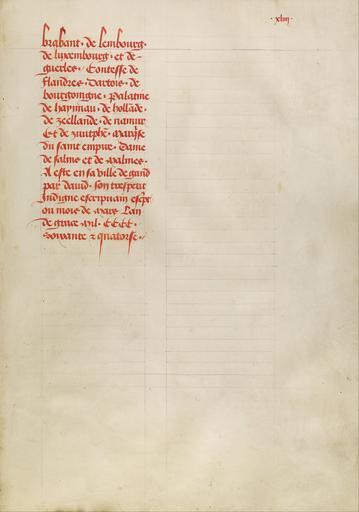 xliii
brabant · de lembourg ·
de luxembourg · et de-
guerles · Contesse de
flandres · Dartois · de
bourgoingne · Palatine
de haynnau · de hollāde ·
de zeellande · de namur
Et de zuutphē · marq̄se
du saint empire · Dame
de salins et de malines ·
A este en sa ville de gand
par dauid · son trespetit
Indigne escripuain escript
ou mois de mars Lan
de grace mil · CCCC ·
soixante z quatorse ·